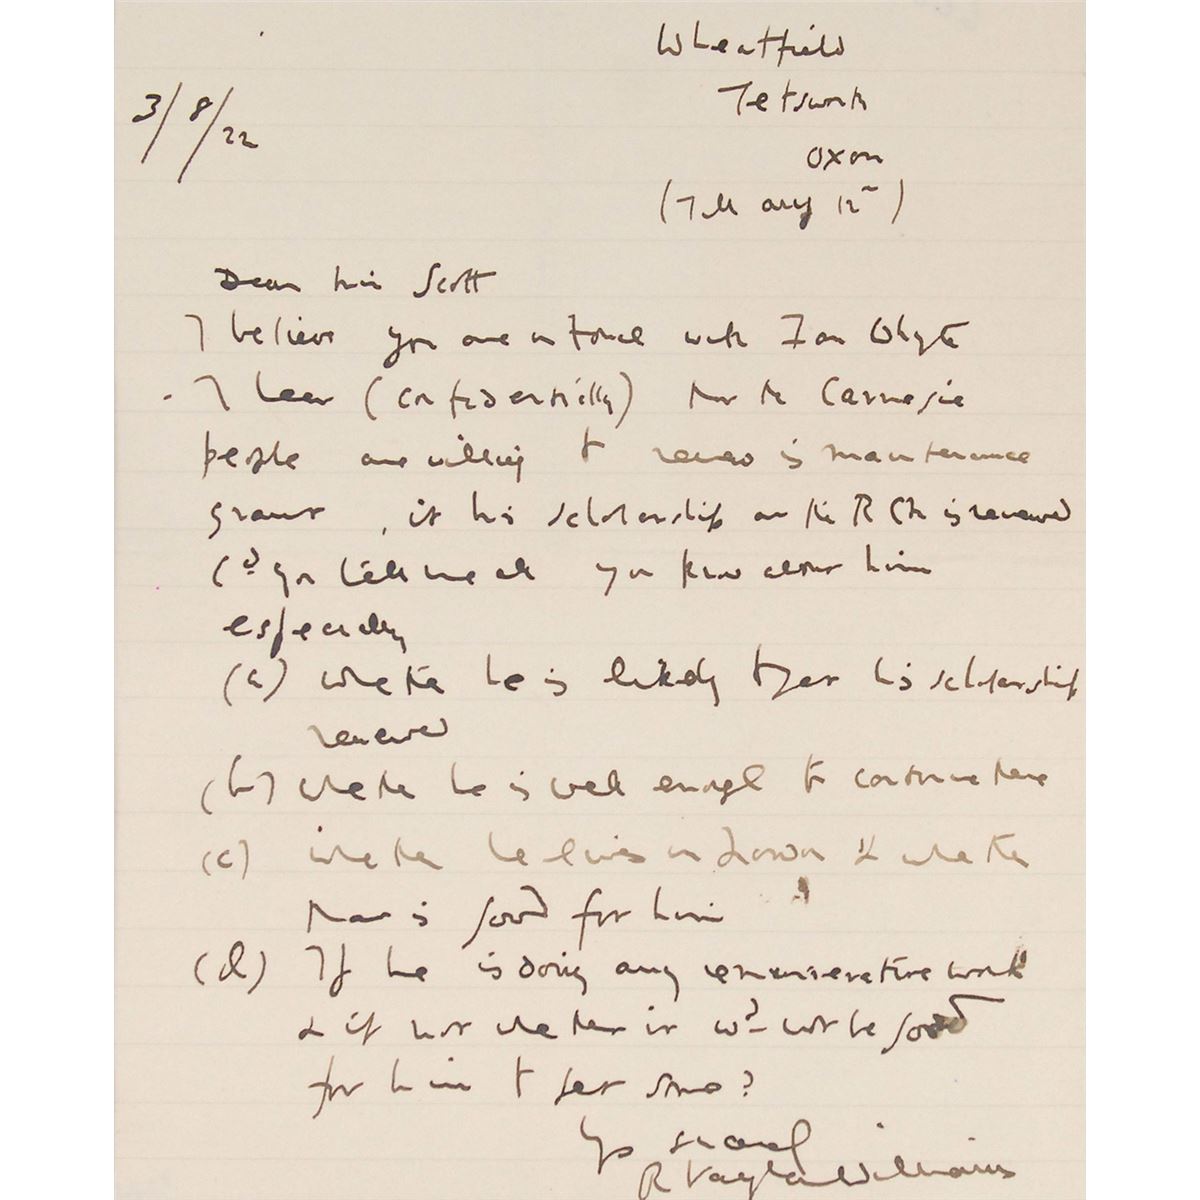 Wheatfield
Tetsworth
3/8/22
Oxon
(Till Aug 12th)
Dear Miss Scott
I believe you are in touch with Ian Whyte
I hear (confidentially) that the Carnegie
people are willing to renew is maintenance
grant, if his scholarship at the RCM is renewed
Cd you tell me all you know about him
especially
(a) whether he is likely to get his scholarship
renewed
(b) whether he is well enough to continue here
(c) whether he lives in London & whether
that is good for him
(d) If he is doing any remunerative work
& if not whether it wd not be good
for him to get some?
Yrs sincerely
R Vaughan Williams